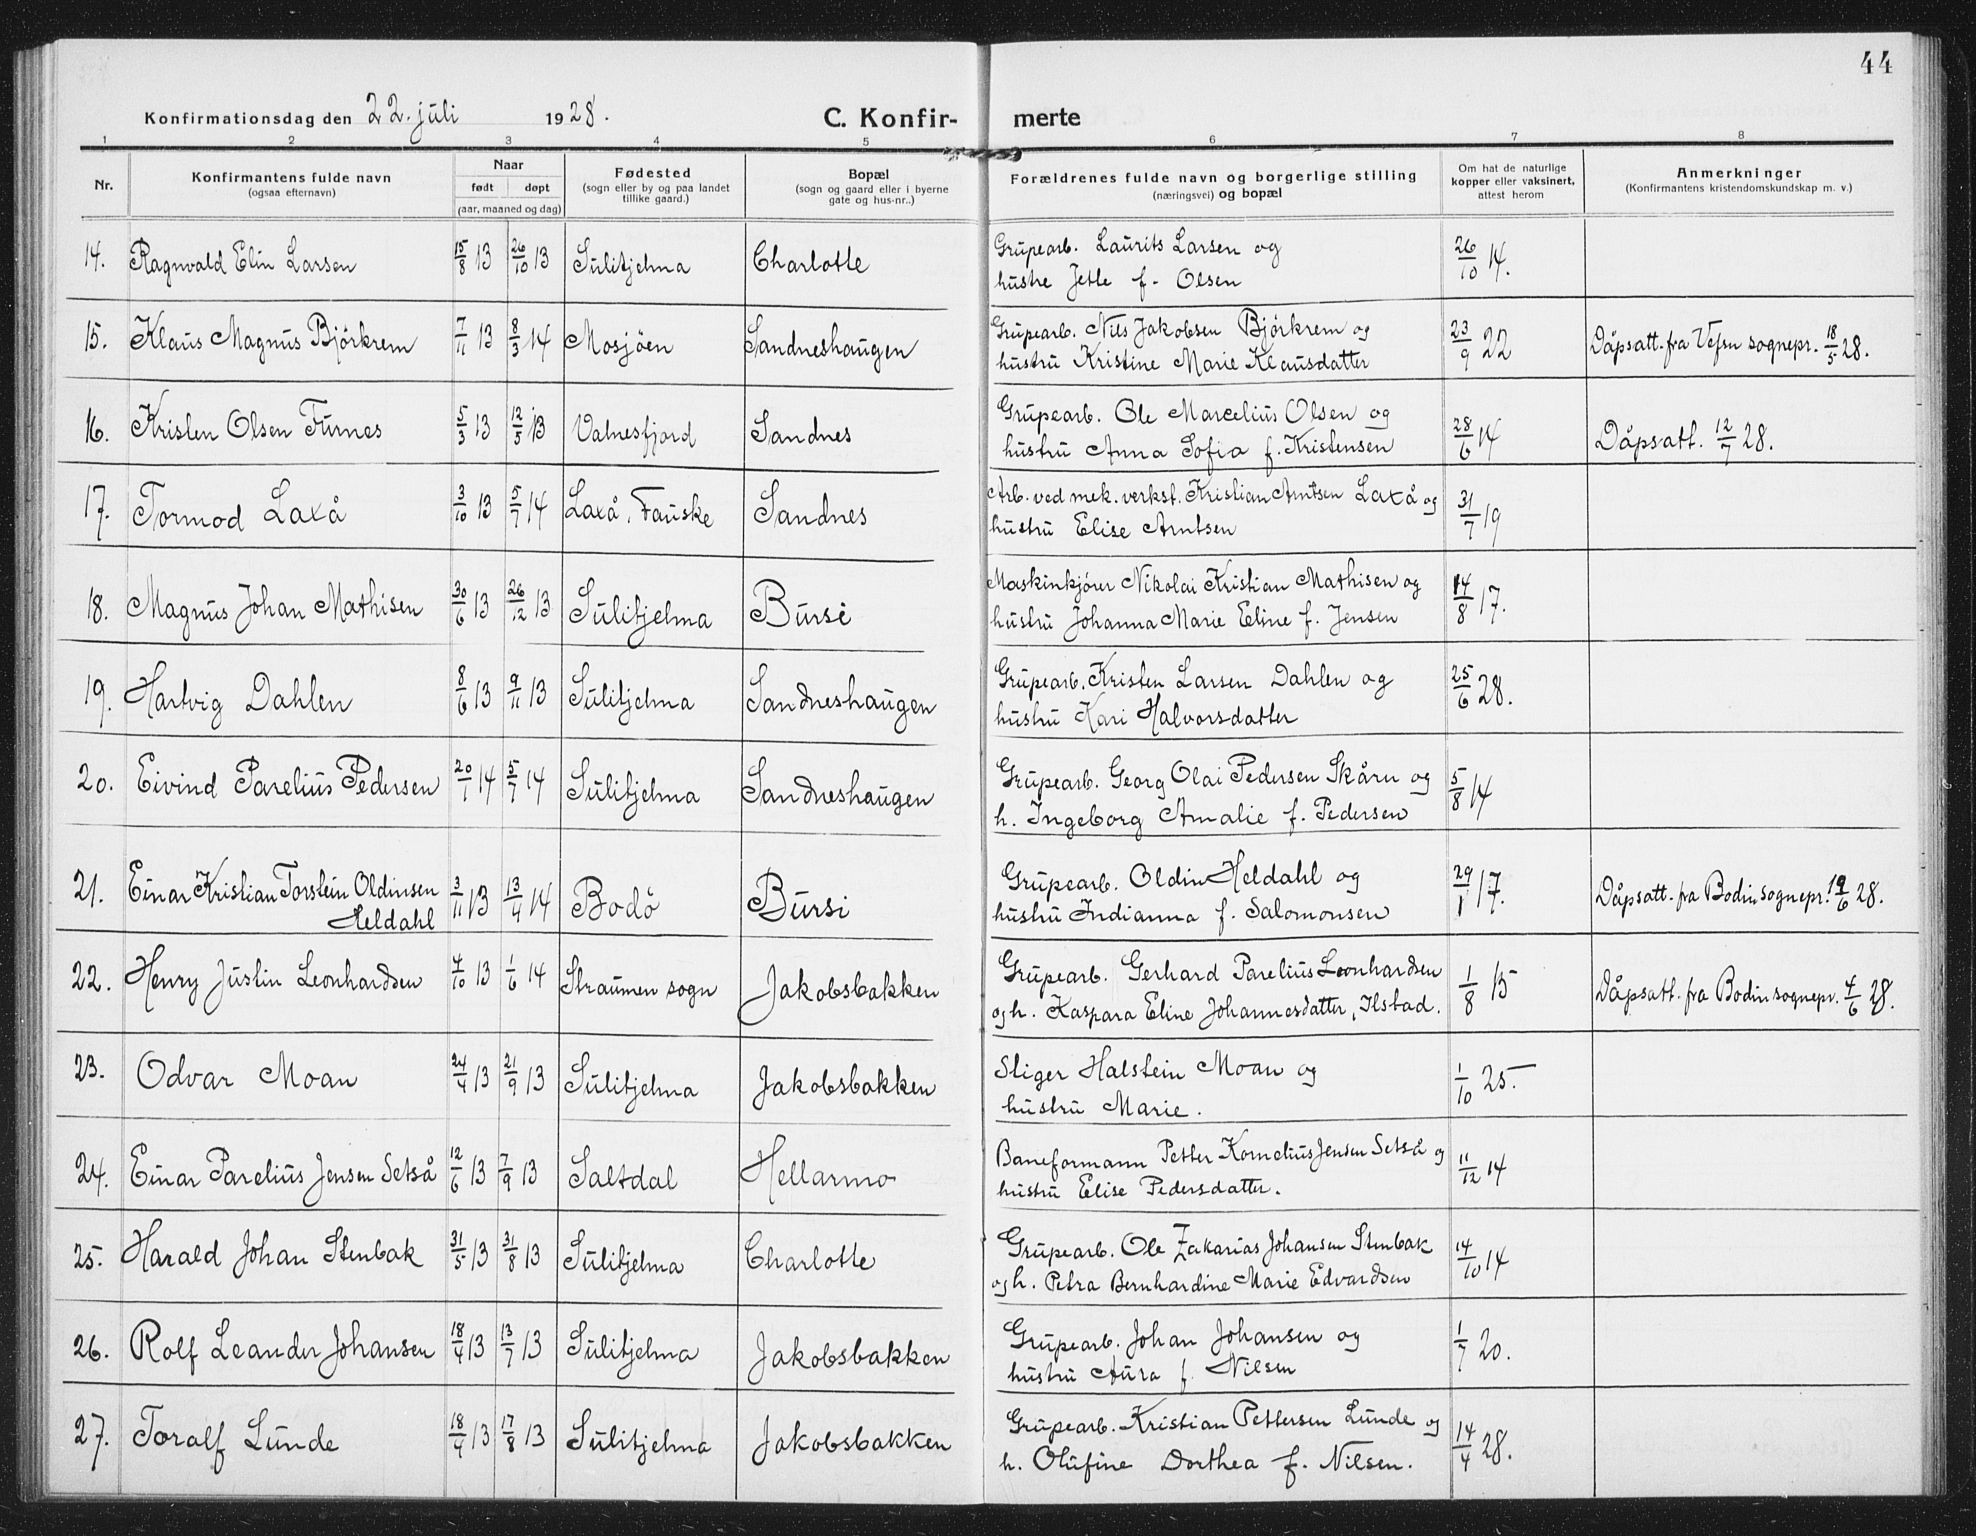 44
Konfirmationsdag den 22. juli 1928.
C. Konfir- merte
1 2 3 4 5 6 7 8
Nr.
Konfirmantens fulde navn
(ogsaa efternavn)
Naar
født døpt
(aar, maaned og dag)
Fødested
(sogn eller by og paa landet
tillike gaard.)
Bopæl
(sogn og gaard eller i byerne
gate og hus-nr..)
Forældrenes fulde navn og borgerlige stilling
(næringsvei) og bopæl
Om hat de naturlige
kopper eller vaksinert,
attest herom
Anmerkninger
(Konfirmantens kristendomskundskap m. v.)
14. Ragnvald Elin Larsen 15/8 13 26/10 13 Sulitjelma Charlotte Grupearb. Laurits Larsen og 26/10 14.
hustru Jetle f. Olsen
15. Klaus Magnus Bjørkrem 7/11 13 8/3 14 Mosjöen Sandneshaugen Grupearb. Nils Jakobsen Bjørkrem og 23/9 22 Dåpsatt. fra Vefsn sognepr. 18/5 28.
hustru Kristine Marie Klausdatter
16. Kristen Olsen Furnes 5/3 13 12/5 13 Valnesfjord Sandnes Grupearb. Ole Marcelius Olsen og 28/6 14 Dåpsatt. 12/7 28.
hustru Anna Sofia f. Kristensen
17. Tormod Laxå 3/10 13 5/7 14 Laxå, Fauske Sandnes Arb. ved mek. verkst. Kristian Arntsen Laxå og 31/7 19
hustru Elise Arntsen
18. Magnus Johan Mathisen 30/6 13 26/12 13 Sulitjelma Bursi Maskinkjører Nikolai Kristian Mathisen og 14/8 17.
hustru Johanna Marie Eline f. Jensen
19. Hartvig Dahlen 8/6 13 9/11 13 Sulitjelma Sandneshaugen Grupearb. Kristen Larsen Dahlen og 25/6 28.
hustru Kari Halvorsdatter
20. Eivind Parelius Pedersen 20/1 14 5/7 14 Sulitjelma Sandneshaugen Grupearb. Georg Olai Pedersen Skåru og 5/8 14
h. Ingeborg Amalie f. Pedersen
21. Einar Kristian Torstein Oldinsen 3/11 13 13/4 14 Bodö Bursi Grupearb. Oldin Heldahl og 29/1 17. Dåpsatt. fra Bodin sognepr. 19/6 28.
Heldahl hustru Indianna f. Salomonsen
22. Henry Justin Leonhardsen 4/10 13 1/6 14 Straumen sogn Jakobsbakken Grupearb. Gerhard Parelius Leonhardsen 1/8 15 Dåpsatt. fra Bodin sognepr. 4/6 28.
og h. Kaspara Eline Johannesdatter, Ilstad.
23. Odvar Moan 24/4 13 21/9 13 Sulitjelma Jakobsbakken Stiger Halstein Moan og 1/10 25.
hustru Marie.
24. Einar Parelius Jensen Setså 12/6 13 7/9 13 Saltdal Hellarmo Baneformann Petter Kornelius Jensen Setså og 11/12 14
hustru Elise Pedersdatter.
25. Harald Johan Stenbak 31/5 13 31/8 13 Sulitjelma Charlotte Grupearb. Ole Zakarias Johansen Stenbak 14/10 14
og h. Petra Bernhardine Marie Edvardsen
26. Rolf Leander Johansen 18/4 13 13/7 13 Sulitjelma Jakobsbakken Grupearb. Johan Johansen og 1/7 20.
hustru Aura f. Nilsen
27. Toralf Lunde 18/4 13 17/8 13 Sulitjelma Jakobsbakken Grupearb. Kristian Pettersen Lunde og 14/4 28.
h. Olufine Dorthea f. Nilsen.